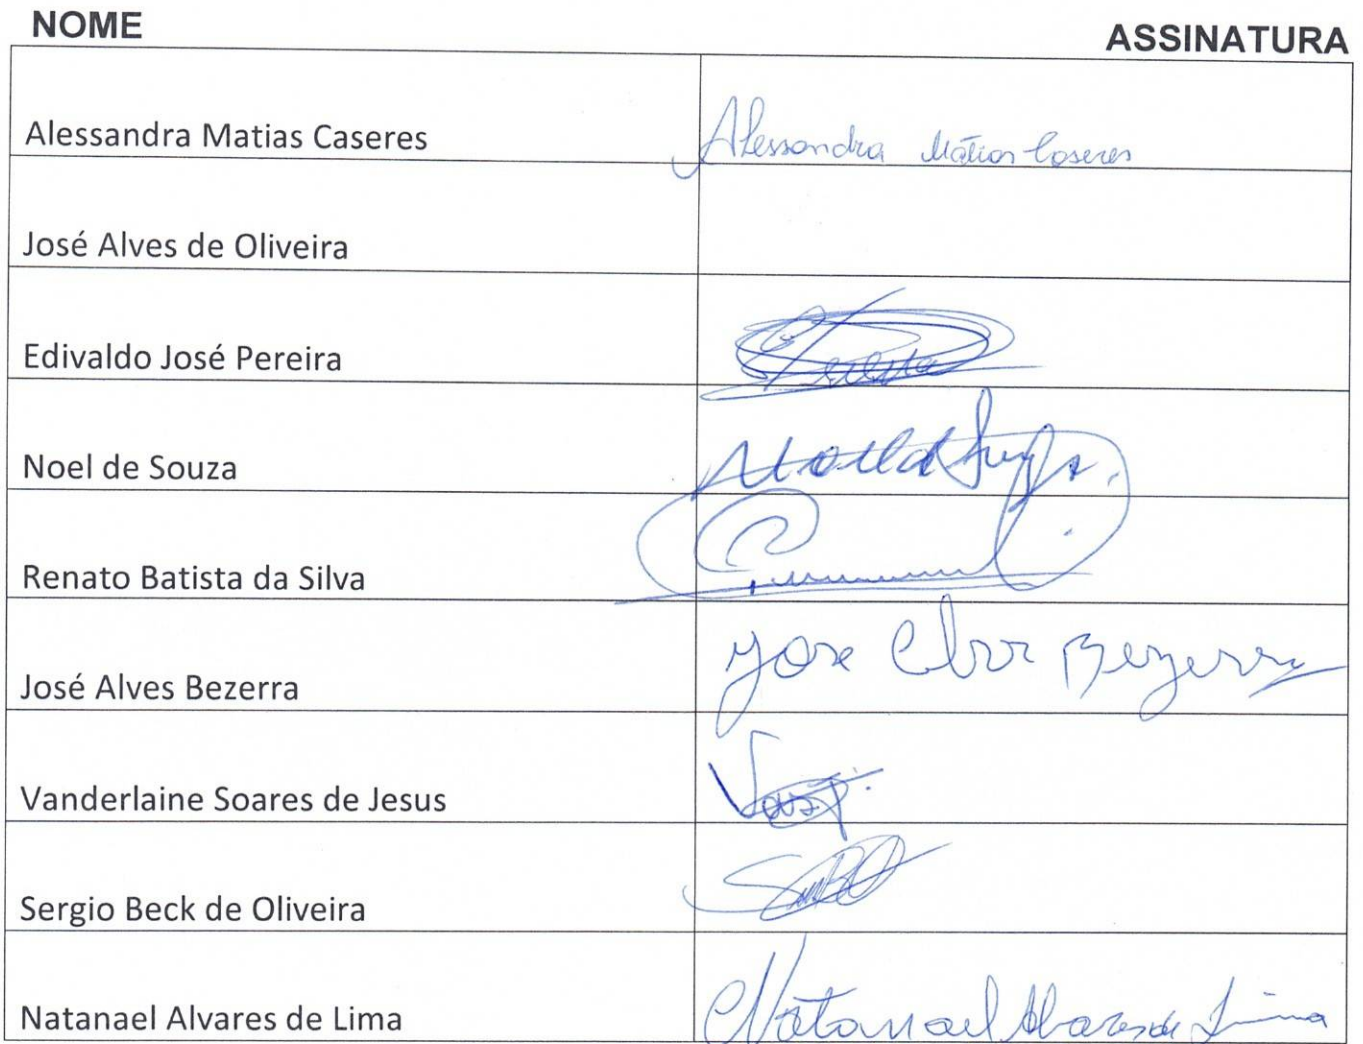 NOME ASSINATURA
Alessandra Matias Caseres Alessandra Matias Caseres
José Alves de Oliveira
Edivaldo José Pereira
Noel de Souza
Renato Batista da Silva
José Alves Bezerra Jose Bezerra
Vanderlaine Soares de Jesus
Sergio Beck de Oliveira
Natanael Alvares de Lima Natanael Alvares de Lima